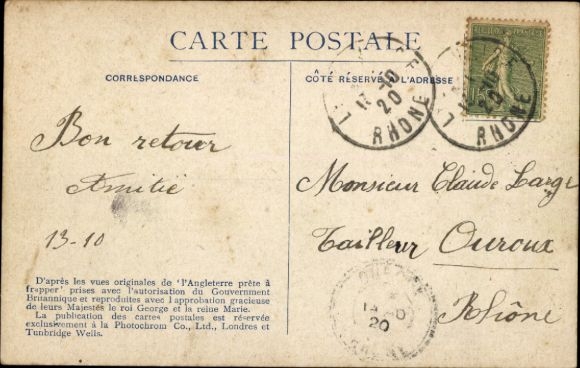 CARTE POSTALE
CORRESPONDANCE
CÔTÉ RÉSERVÉ À L'ADRESSE
RHÔNE
20
RHÔNE
Bon retour
Amitié
13-10
Monsieur Claude Large
Tailleur Ouroux
Rhône
20
D'après les vues originales de 'l'Angleterre prête à
frapper' prises avec l'autorisation du Gouvernment
Britannique et reproduites avec l'approbation gracieuse
de leurs Majestés le roi George et la reine Marie.
La publication des cartes postales est réservée
exclusivement à la Photochrom Co., Ltd., Londres et
Tunbridge Wells.